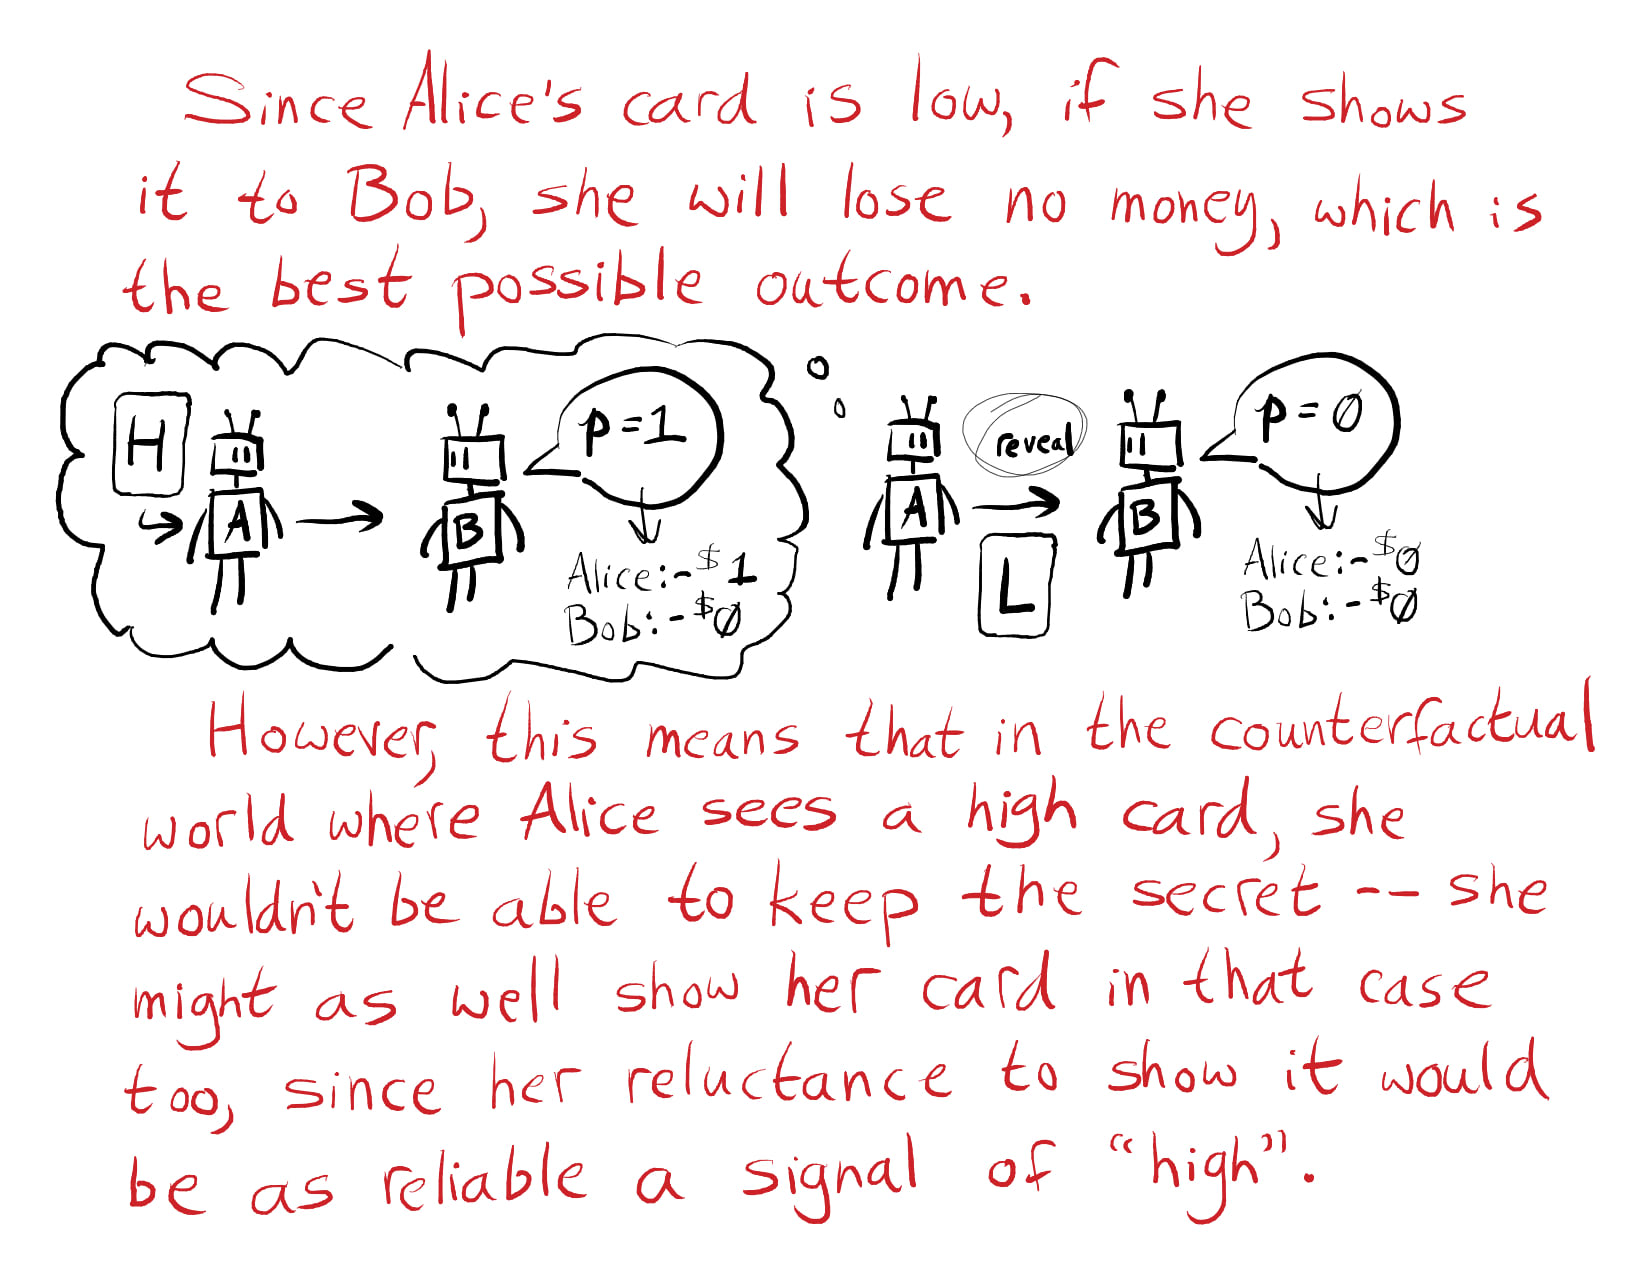 Since Alice's card is low, if she shows
it to Bob, she will lose no money, which is
the best possible outcome.
H
A
B
p=1
Alice:-$1
Bob:-$0
A
reveal
L
B
p=0
Alice:-$0
Bob:-$0
However, this means that in the counterfactual
world where Alice sees a high card, she
wouldn't be able to keep the secret -- she
might as well show her card in that case
too, since her reluctance to show it would
be as reliable a signal of "high".